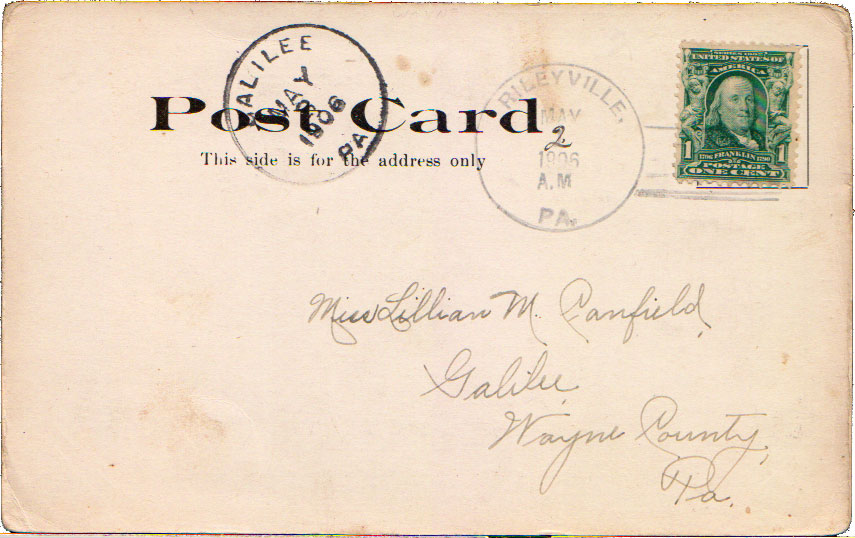 GALILEE
MAY
1906
PA.
RILEYVILLE,
MAY
2
1906
A.M
PA.
SERIES 1902
UNITED STATES OF
AMERICA
1 1706 FRANKLIN 1790 1
POSTAGE
ONE CENT
Post Card.
This side is for the address only
Miss Lillian M. Canfield,
Galilee
Wayne County,
Pa.